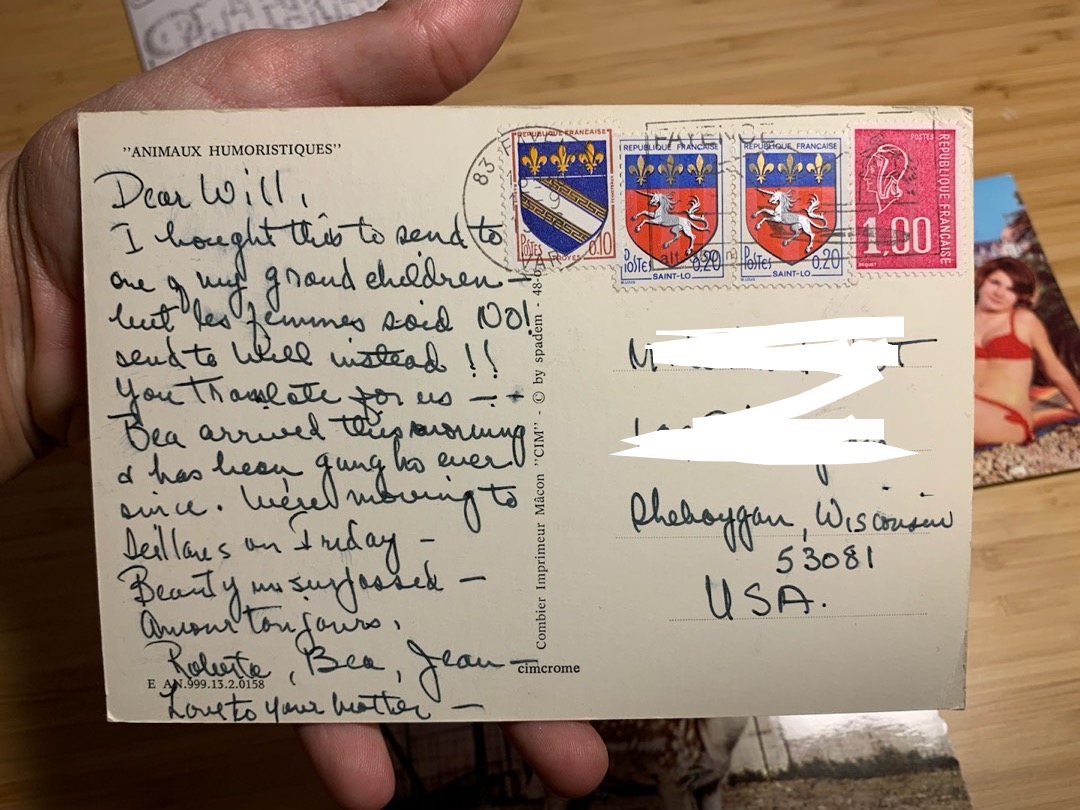 "ANIMAUX HUMORISTIQUES"
Dear Will,
I bought this to send to
one of my grand children –
but les femmes said NO!
send to Will instead !!
You translate for us – –
Bea arrived this morning
& has been gung ho ever
since. We're moving to
Seillans on Friday –
Beauty unsurpassed –
Amour toujours,
Roberta, Bea, Jean –
E AN.999.13.2.0158
Love to your mother –
Combier Imprimeur Mâcon "CIM" - © by spadem - 48-6
cimcrome
83
FAYENCE
REPUBLIQUE FRANÇAISE
POSTES 0.10
TROYES
REPUBLIQUE FRANÇAISE
POSTES 0.20
SAINT-LO
REPUBLIQUE FRANÇAISE
POSTES 0.20
SAINT-LO
POSTES
REPUBLIQUE FRANÇAISE
1,00
BEQUET
Sheboygan, Wisconsin
53081
USA.